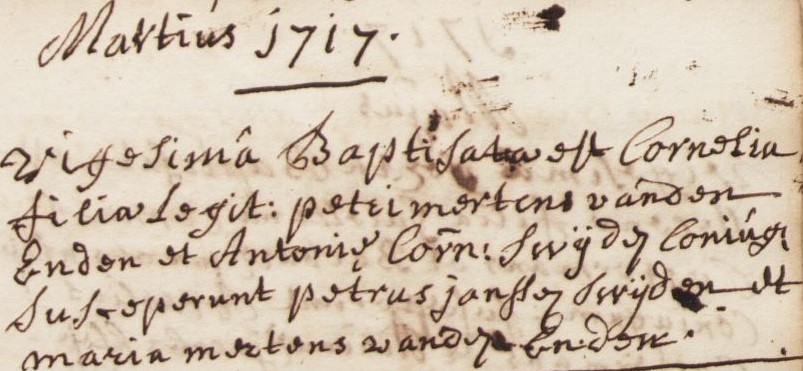 Martius 1717.
Vigesimâ Baptisata est Cornelia
filia legit: petri mertens vanden
Enden et Antonię Corn: Swijdẽ Coniúg:
Susceperunt petrus janssẽ Swijden et
maria mertens vandẽ Enden.